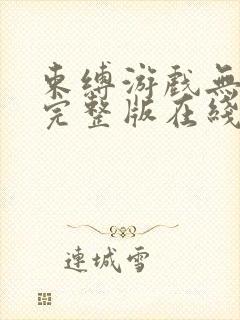 束缚游戏無
完整版在綫
連城雪